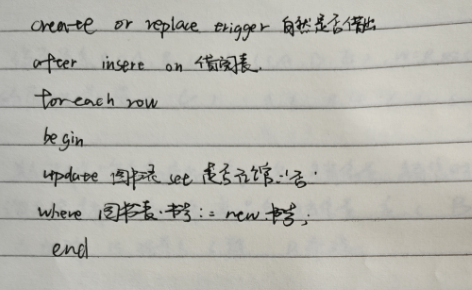 create or replace trigger 自然是否借出
after insere on 借阅表.
for each row
begin
update 图书表 set 是否在馆:'否'
where 图书表.书号:=new 书号;
end